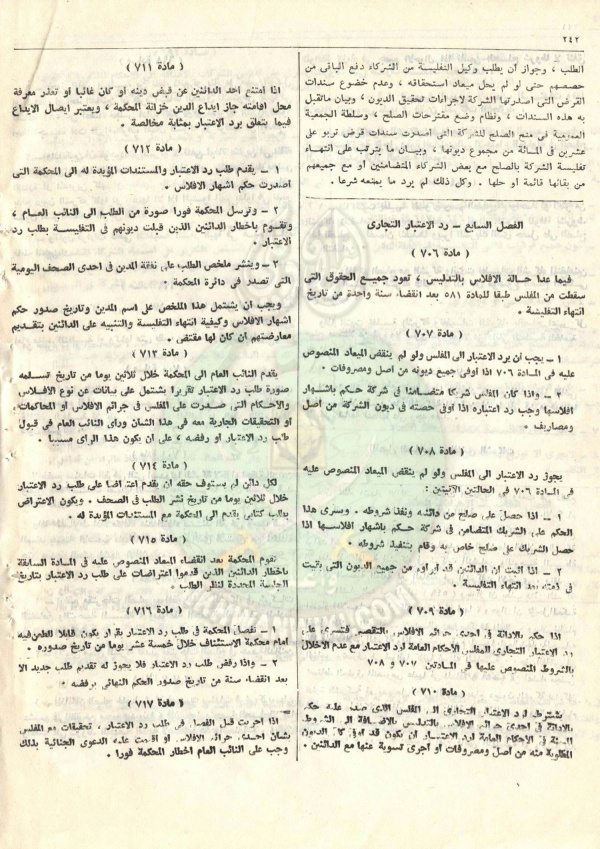 ٢٤٢
الطلب ، وجواز أن يطلب وكيل التفليسة من الشركاء دفع الباقى من
حصصهم حتى لو لم يحل ميعاد استحقاقه ، وعدم خضوع سندات
القرض التى أصدرتها الشركة لاجراءات تحقيق الديون ، وبيان ماتقبل
به هذه السندات ، ونظام وضع مقترحات الصلح ، وسلطة الجمعية
العمومية فى منح الصلح للشركة التى أصدرت سندات قرض تربو على
عشرين فى المائة من مجموع ديونها ، وبيان ما يترتب على انتهاء
تفليسة الشركة بالصلح مع بعض الشركاء المتضامنين أو مع جميعهم
من بقائها قائمة أو حلها . وكل ذلك لم يرد ما يمنعه شرعا .
الفصل السابع - رد الاعتبار التجارى
( مادة ٧٠٦ )
فيما عدا حالة الافلاس بالتدليس ، تعود جميع الحقوق التى
سقطت من المفلس طبقا للمادة ٥٨١ بعد انقضاء سنة واحدة من تاريخ
انتهاء التفليسة .
( مادة ٧٠٧ )
١ - يجب أن يرد الاعتبار الى المفلس ولو لم ينقض الميعاد المنصوص
عليه فى المادة ٧٠٦ اذا أوفى جميع ديونه من أصل ومصروفات .
٢ - واذا كان المفلس شريكا متضامنا فى شركة حكم باشهار
افلاسها وجب رد اعتباره اذا أوفى حصته فى ديون الشركة من أصل
ومصاريف .
( مادة ٧٠٨ )
يجوز رد الاعتبار الى المفلس ولو لم ينقض الميعاد المنصوص عليه
فى المادة ٧٠٦ فى الحالتين الآتيتين :
١ - اذا حصل على صلح من دائنيه ونفذ شروطه . ويسرى هذا
الحكم على الشريك المتضامن فى شركة حكم باشهار افلاسها اذا
حصل الشريك على صلح خاص به وقام بتنفيذ شروطه .
٢ - اذا أثبت أن الدائنين قد أبرأوه من جميع الديون التى بقيت
فى ذمته بعد انتهاء التفليسة .
( مادة ٧٠٩ )
اذا حكم بالادانة فى احدى جرائم الافلاس بالتقصير فتسرى على
رد الاعتبار التجارى للمفلس الأحكام العامة لرد الاعتبار مع عدم الاخلال
بالشروط المنصوص عليها فى المادتين ٧٠٧ و ٧٠٨
( مادة ٧١٠ )
يشترط لرد الاعتبار التجارى الى المفلس الذى صدر عليه حكم
بالادانة فى احدى جرائم الافلاس بالتدليس بالاضافة الى الشروط
المبينة فى الأحكام العامة لرد الاعتبار أن يكون قد أوفى كل الديون
المطلوبة منه من أصل ومصروفات أو أجرى تسوية عنها مع الدائنين .
( مادة ٧١١ )
اذا امتنع أحد الدائنين عن قبض دينه أو كان غائبا أو تعذر معرفة
محل اقامته جاز ايداع الدين خزانة المحكمة ، ويعتبر ايصال الايداع
فيما يتعلق برد الاعتبار بمثابة مخالصة .
( مادة ٧١٢ )
١ - يقدم طلب رد الاعتبار والمستندات المؤيدة له الى المحكمة التى
أصدرت حكم اشهار الافلاس .
٢ - وترسل المحكمة فورا صورة من الطلب الى النائب العام ،
وتقوم باخطار الدائنين الذين قبلت ديونهم فى التفليسة بطلب رد
الاعتبار .
٣ - وينشر ملخص الطلب على نفقة المدين فى احدى الصحف اليومية
التى تصدر فى دائرة المحكمة :
ويجب أن يشتمل هذا الملخص على اسم المدين وتاريخ صدور حكم
اشهار الافلاس وكيفية انتهاء التفليسة والتنبيه على الدائنين بتقديم
معارضتهم ان كان لها مقتضى .
( مادة ٧١٣ )
يقدم النائب العام الى المحكمة خلال ثلاثين يوما من تاريخ تسلمه
صورة طلب رد الاعتبار تقريرا يشتمل على بيانات عن نوع الافلاس
والأحكام التى صدرت على المفلس فى جرائم الافلاس أو المحاكمات
أو التحقيقات الجارية معه فى هذا الشأن ورأى النائب العام فى قبول
طلب رد الاعتبار أو رفضه ، على أن يكون هذا الرأى مسببا .
( مادة ٧١٤ )
لكل دائن لم يستوف حقه أن يقدم اعتراضا على طلب رد الاعتبار
خلال ثلاثين يوما من تاريخ نشر الطلب فى الصحف . ويكون الاعتراض
بطلب كتابى يقدم الى المحكمة مع المستندات المؤيدة له .
( مادة ٧١٥ )
تقوم المحكمة بعد انقضاء الميعاد المنصوص عليه فى المادة السابقة
باخطار الدائنين الذين قدموا اعتراضات على طلب رد الاعتبار بتاريخ
الجلسة المحددة لنظر الطلب .
( مادة ٧١٦ )
١ - تفصل المحكمة فى طلب رد الاعتبار بقرار يكون قابلا للطعن فيه
أمام محكمة الاستئناف خلال خمسة عشر يوما من تاريخ صدوره .
٢ - واذا رفض طلب رد الاعتبار فلا يجوز له تقديم طلب جديد الا
بعد انقضاء سنة من تاريخ صدور الحكم النهائى برفضه .
( مادة ٧١٧ )
اذا أجريت قبل الفصل فى طلب رد الاعتبار ، تحقيقات مع المفلس
بشأن احدى جرائم الافلاس أو أقيمت عليه الدعوى الجنائية بذلك
وجب على النائب العام اخطار المحكمة فورا .